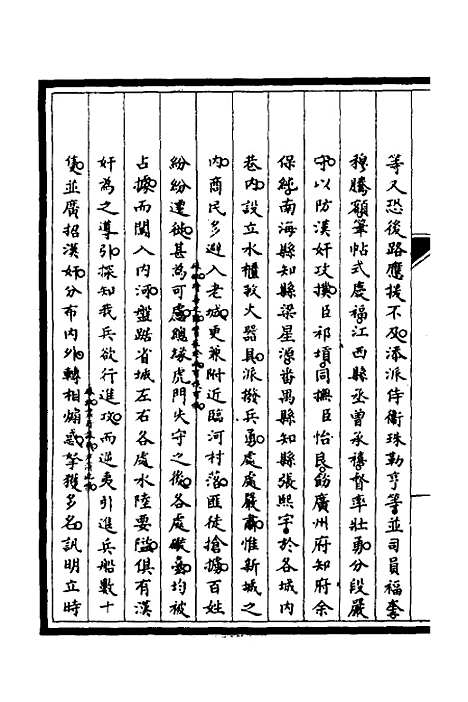 等又恐後路應援不及添派侍衛珠勒亨等並司員福奎
穆騰額筆帖式慶福江西縣丞曾承禧督率壯勇分段嚴
守以防漢奸攻撲臣祁𡎴同撫臣怡良飭廣州府知府余
保純南海縣知縣梁星源番禺縣知縣張熙宇於各城內
巷內設立水櫃救火器具派撥兵勇處處嚴肅惟新城之
內商民多避入老城更兼附近臨河村落匪徒搶擄百姓
紛紛遷徙甚為可慮總緣虎門失守之後各處礮臺均被
占據而闖入內河盤踞省城左右各處水陸要隘俱有漢
奸為之導引探知我兵欲行進攻而逆夷引進兵船數十
隻並廣招漢奸分布內外轉相煽惑拏獲多名訊明立時